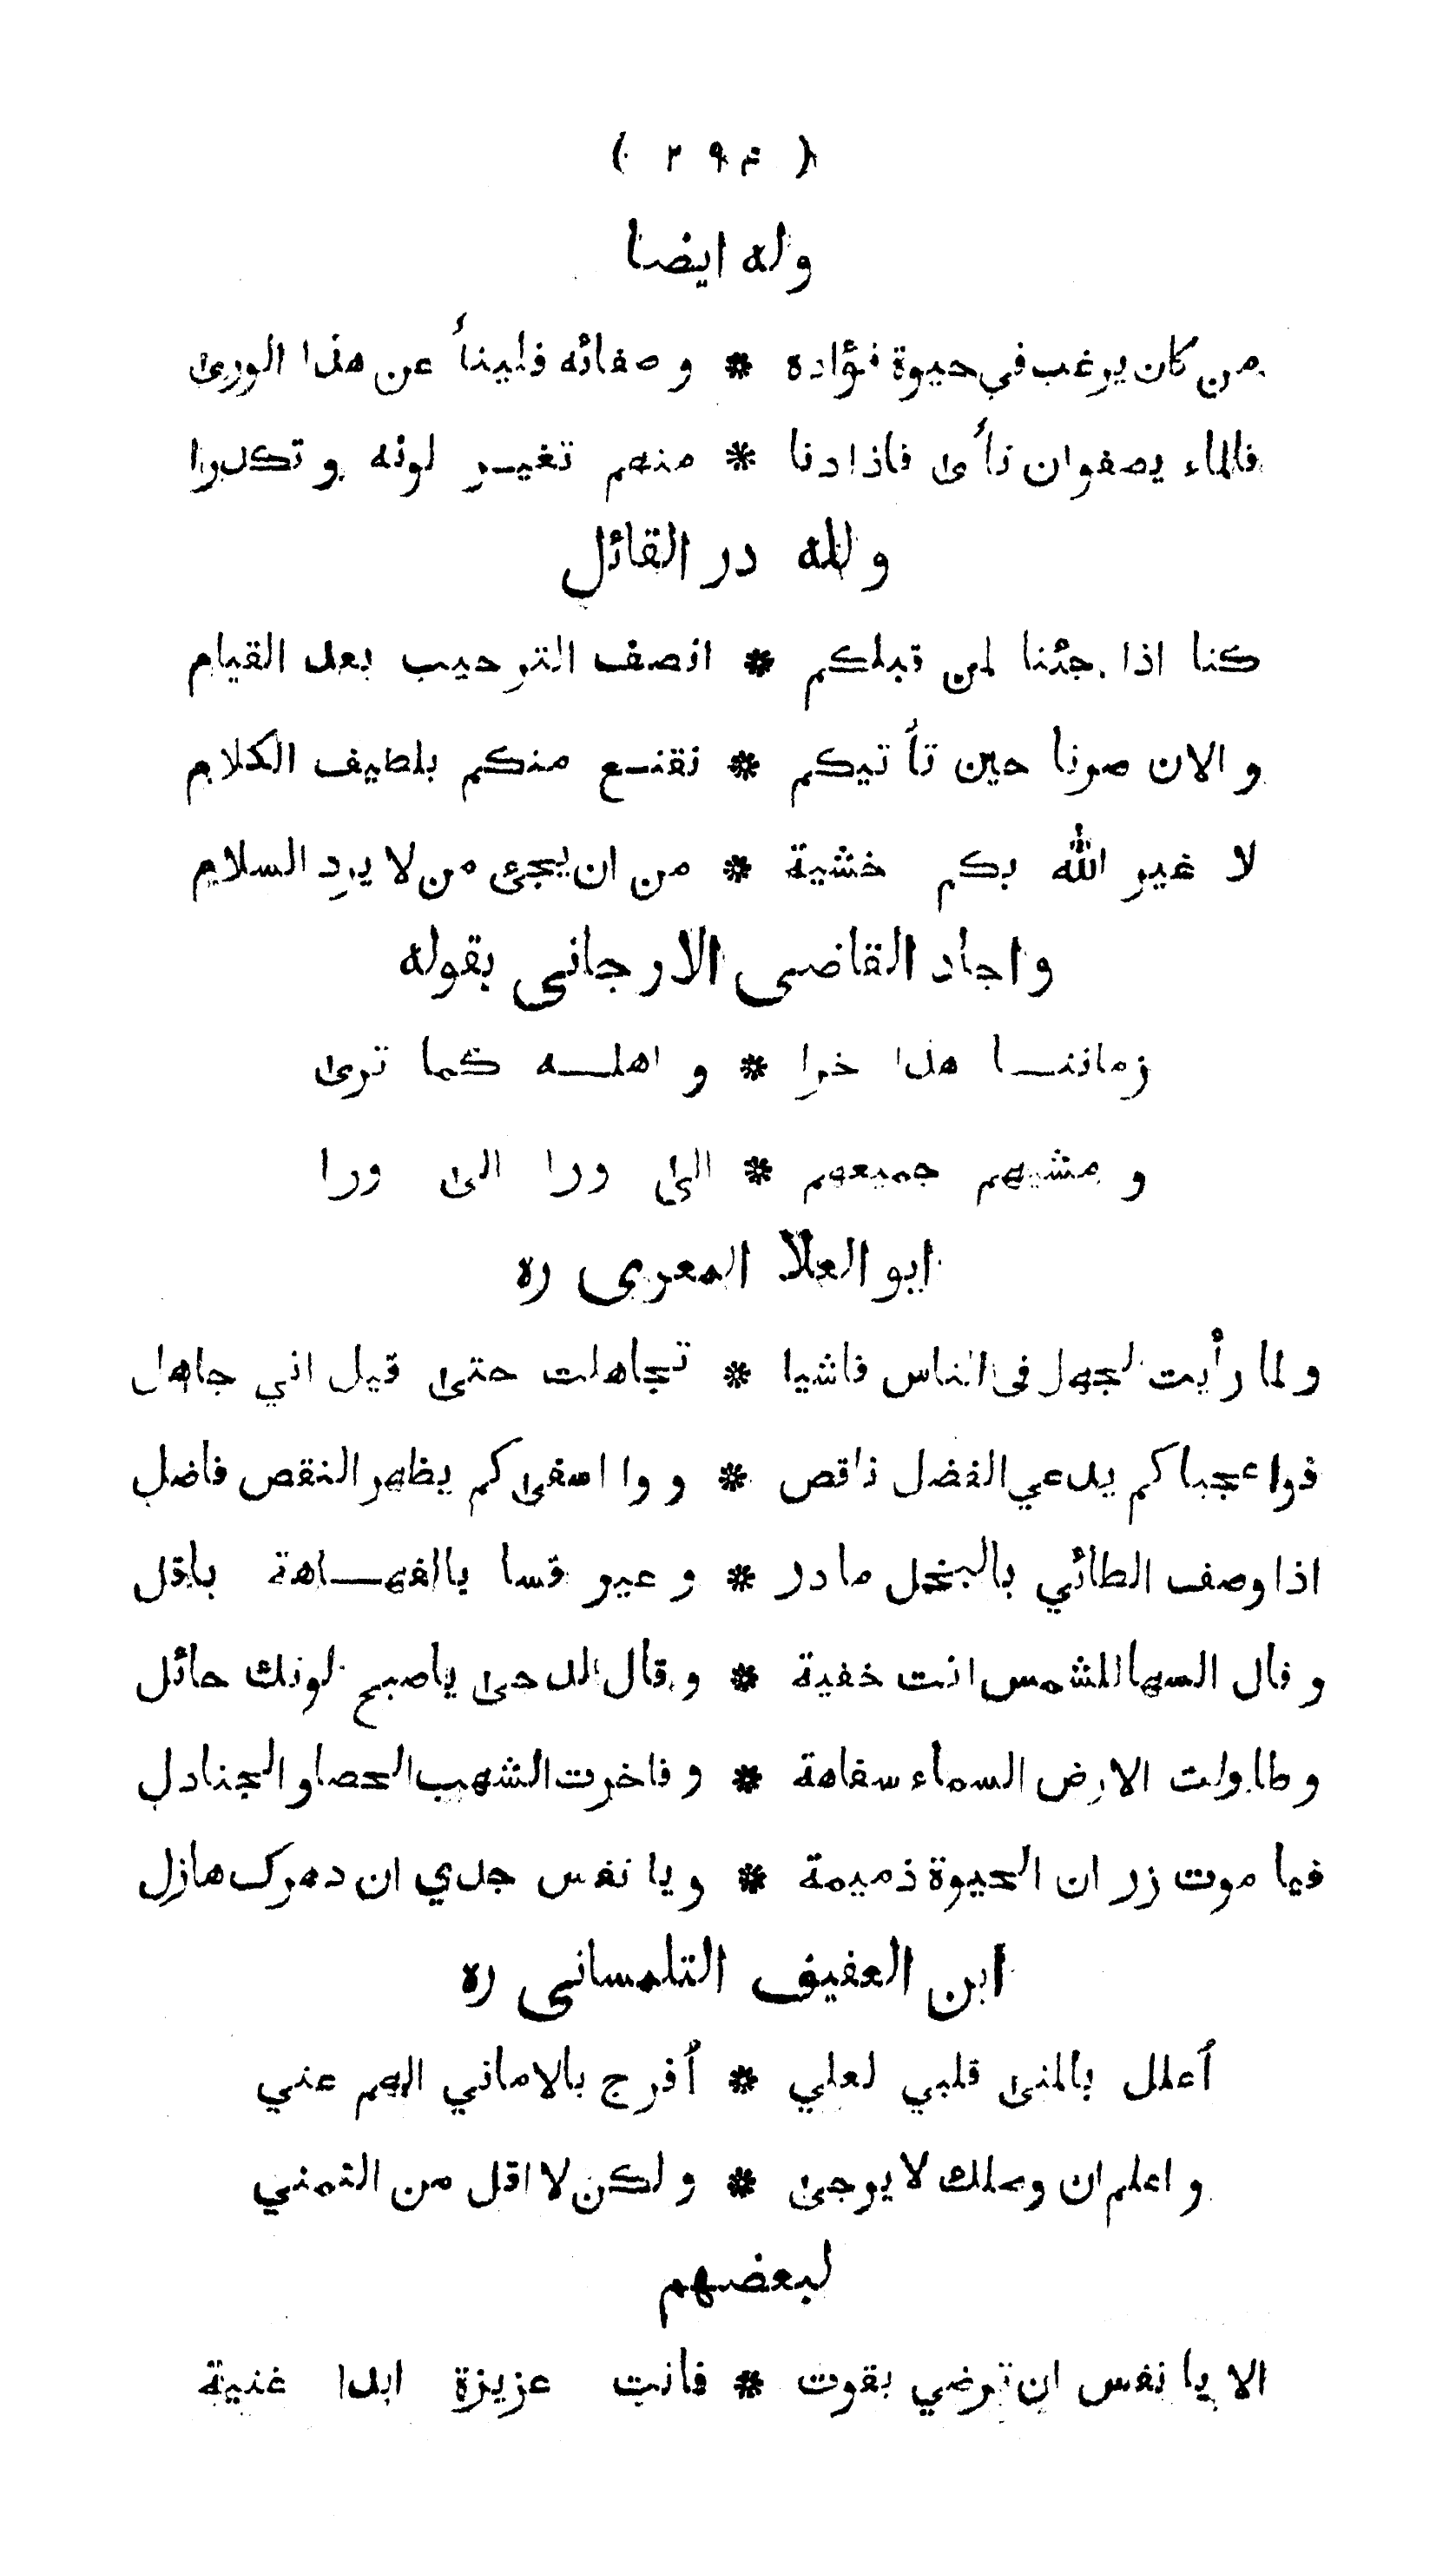 ( ۲۹۴ )
وله ايضا
من كان يرغب في حيوة فؤاده * وصفائه فلينأ عن هذا الورى
فالماء يصفو ان نأى فاذا دنا * منهم تغير لونه وتكدرا
ولله در القائل
كنا اذا جئنا لمن قبلكم * انصف الترحيب بعد القيام
والان صرنا حين تأتيكم * نقنع منكم بلطيف الكلام
لا غير الله بكم خشية * من ان يجئ من لا يرد السلام
واجاد القاضى الارجانى بقوله
زماننا هذا خرا * واهله كما ترى
ومشيهم جميعهم * الى ورا الى ورا
ابو العلا المعرى ره
ولما رأيت الجهل فى الناس فاشيا * تجاهلت حتى قيل اني جاهل
فواعجبا كم يدعي الفضل ناقص * ووا اسفى كم يظهر النقص فاضل
اذا وصف الطائي بالبخل مادر * وعير قسا بالفهاهة باقل
وقال السها للشمس انت خفية * وقال الدجى ياصبح لونك حائل
وطاولت الارض السماء سفاهة * وفاخرت الشهب الحصا والجنادل
فيا موت زر ان الحيوة ذميمة * ويا نفس جدي ان دهرك هازل
ابن العفيف التلمسانى ره
أعلل بالمنى قلبي لعلي * أفرج بالاماني الهم عني
واعلم ان وصلك لا يرجى * ولكن لا اقل من التمني
لبعضهم
الا يا نفس ان ترضي بقوت * فانت عزيزة ابدا غنية